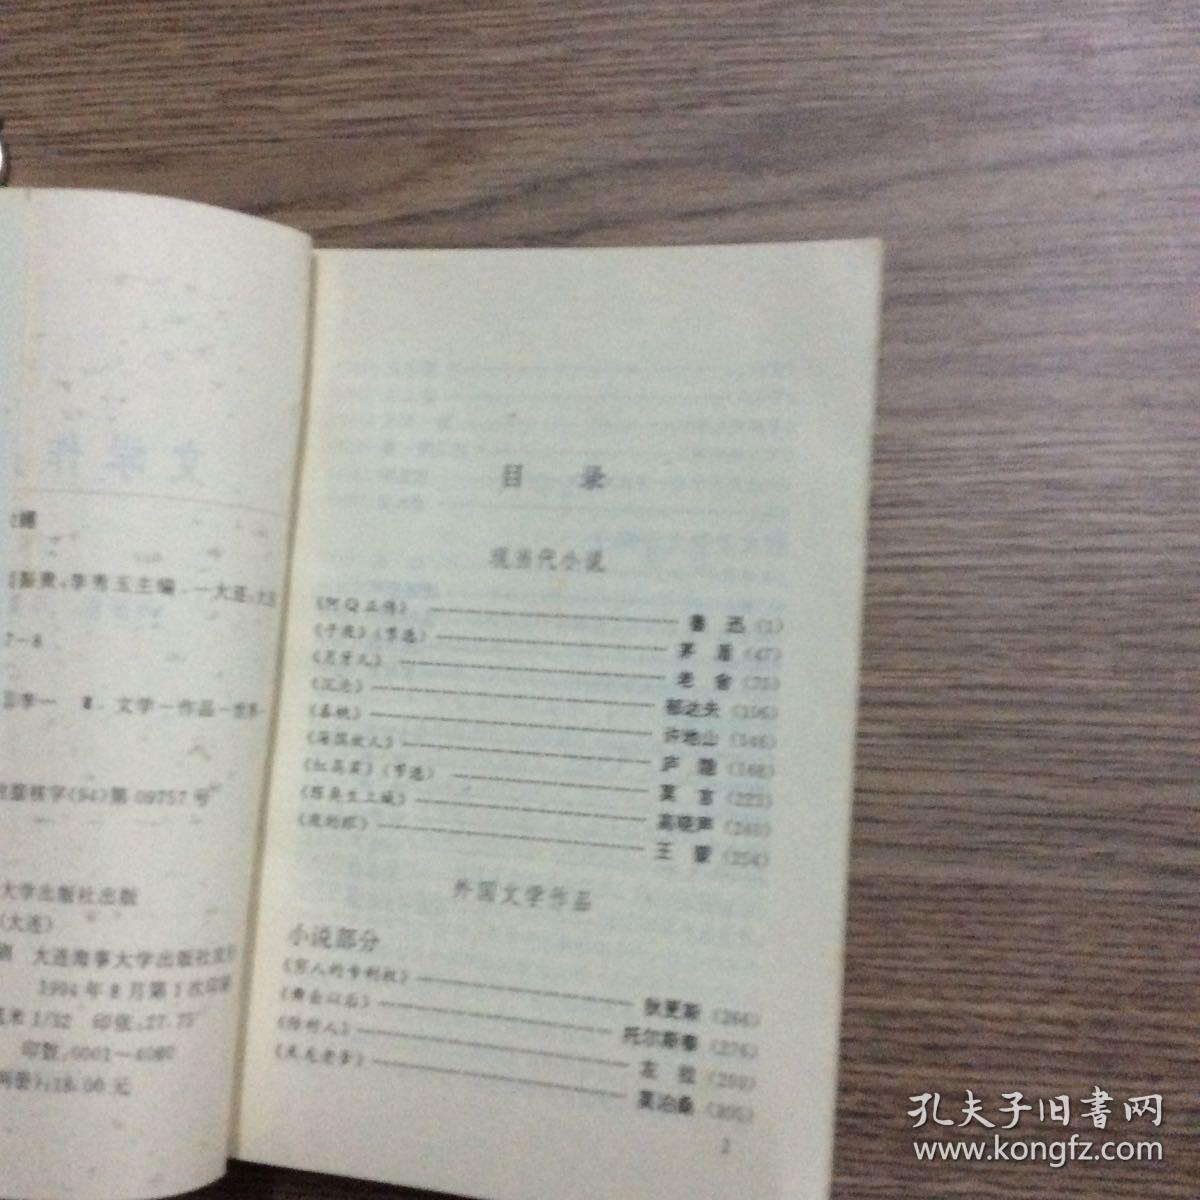 文学作
鉴贵,李秀玉主编.一大连:大连
7-8
Ⅱ.文学-作品-世界-
核字(94)第09757号
大学出版社出版
(大连)
大连海事大学出版社发行
1994年8月第1次印刷
毫米1/32 印张:27.75
印数:0001—4000
册):18.00元
目 录
现当代小说
《阿Q正传》 鲁 迅(1)
《子夜》(节选) 茅 盾(47)
《月牙儿》 老 舍(75)
《沉沦》 郁达夫(106)
《春桃》 许地山(146)
《海滨故人》 庐 隐(168)
《红高粱》(节选) 莫 言(223)
《陈奂生上城》 高晓声(240)
王 蒙(254)
外国文学作品
小说部分
《穷人的专利权》 狄更斯(266)
《舞会以后》 托尔斯泰(276)
《陪衬人》 左 拉
《米龙老爹》 莫泊桑
1
孔夫子旧书网
www.kongfz.com